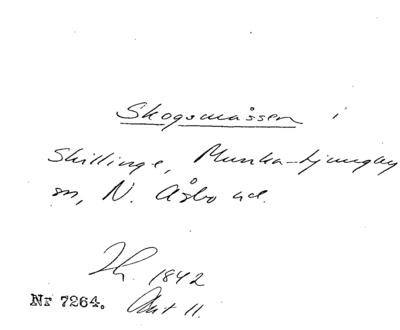 Skogsmåssen i
Skillinge, Munka-Ljungby
sn, N. Åsbo hd.
Th. 1842
Nr 7264. Ant 11.